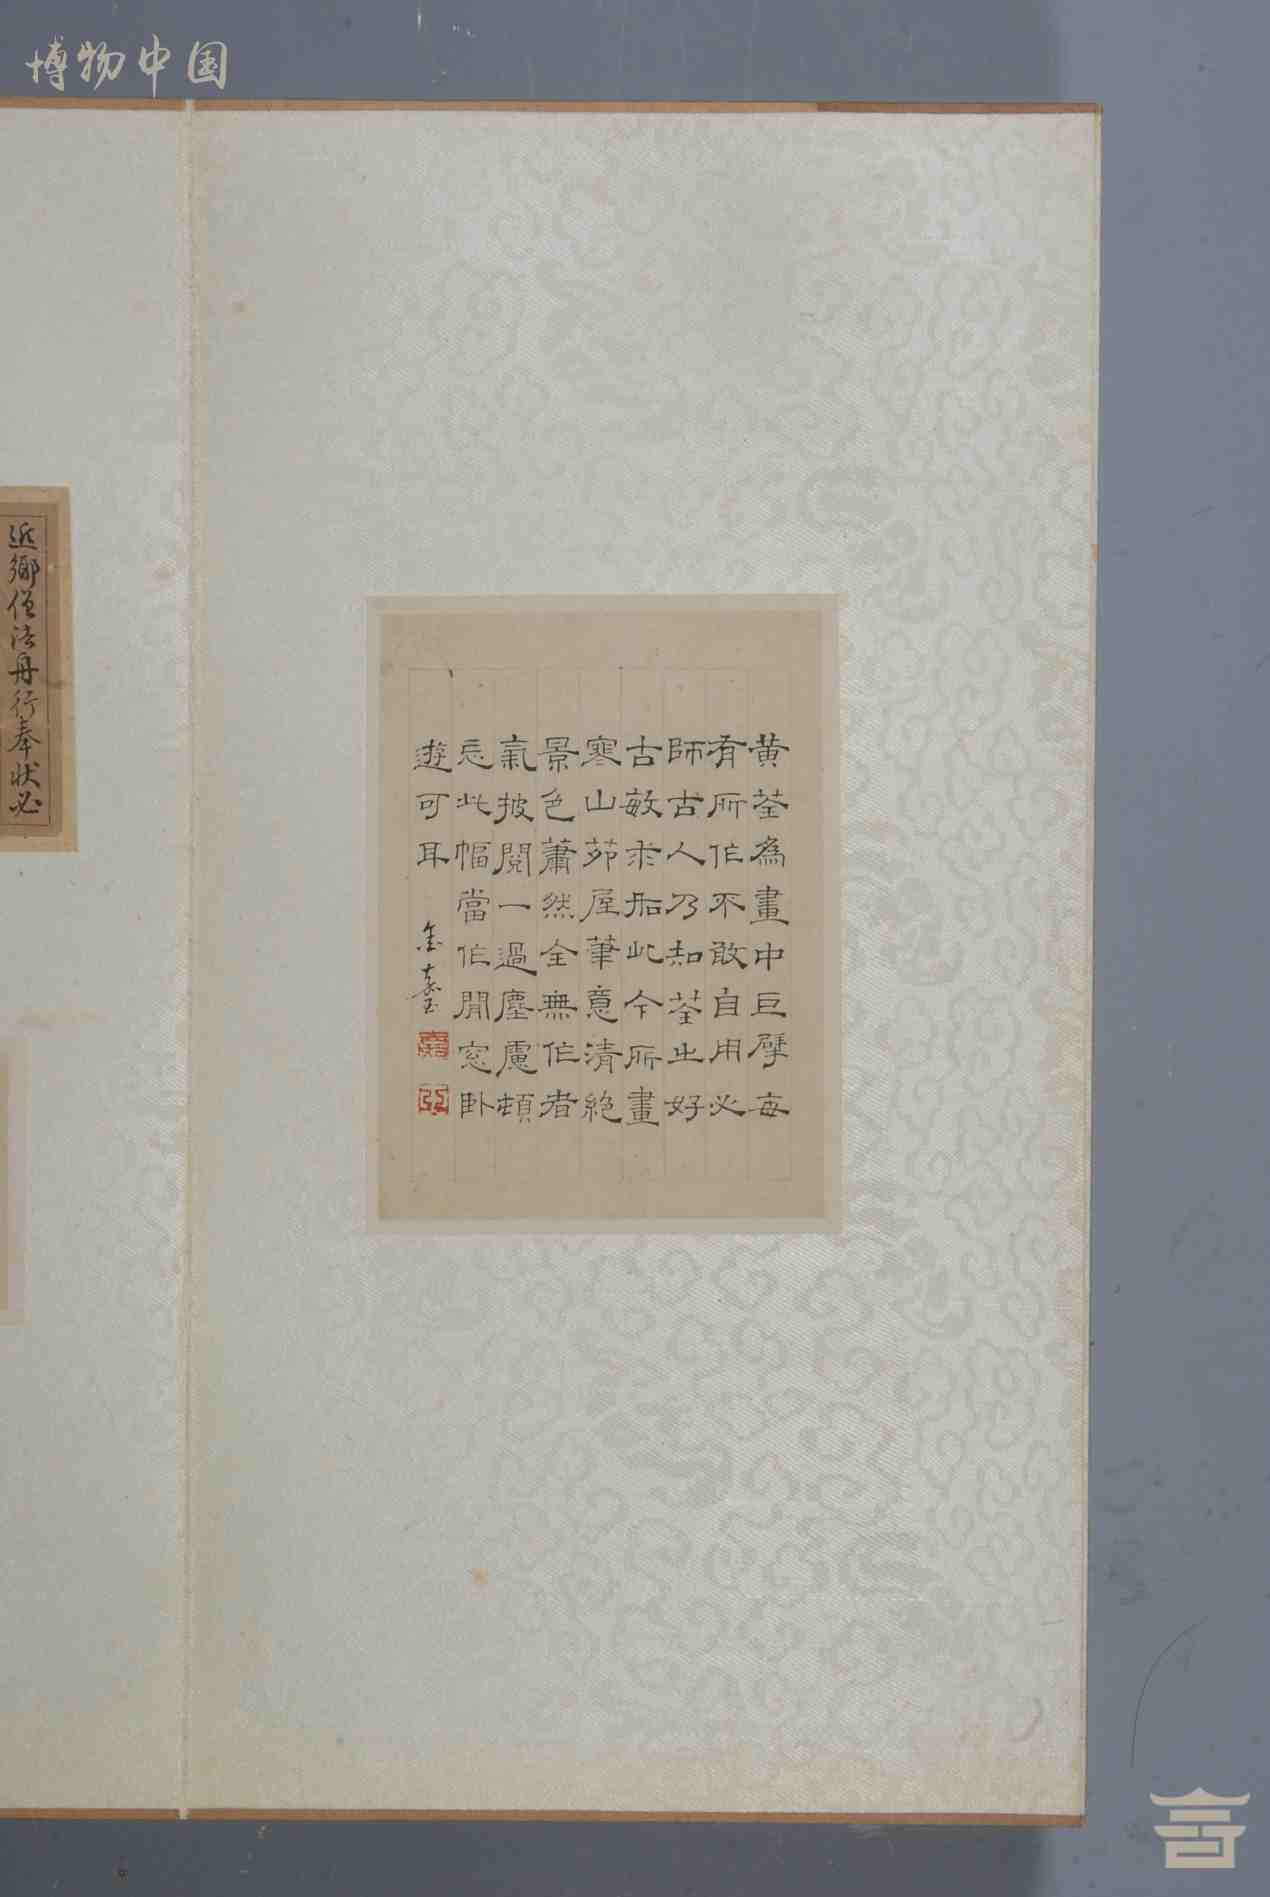 博物中国
黄荃為畫中巨擘每
有所作不敢自用必
師古人乃知荃之好
古敏求如此今所畫
寒山茆屋筆意清絶
景色蕭然全無作者
氣披閱一過塵慮頓
忘此幅當作閒窓臥
遊可耳
近鄉僧法舟行奉狀必